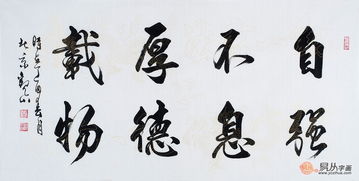 自强
不息
厚德
载物
时在丁酉春月
北京
易从字画